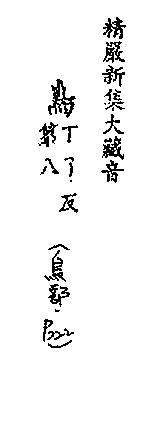 精嚴新集大藏音
丁了反
第八
(鳥部, P322)